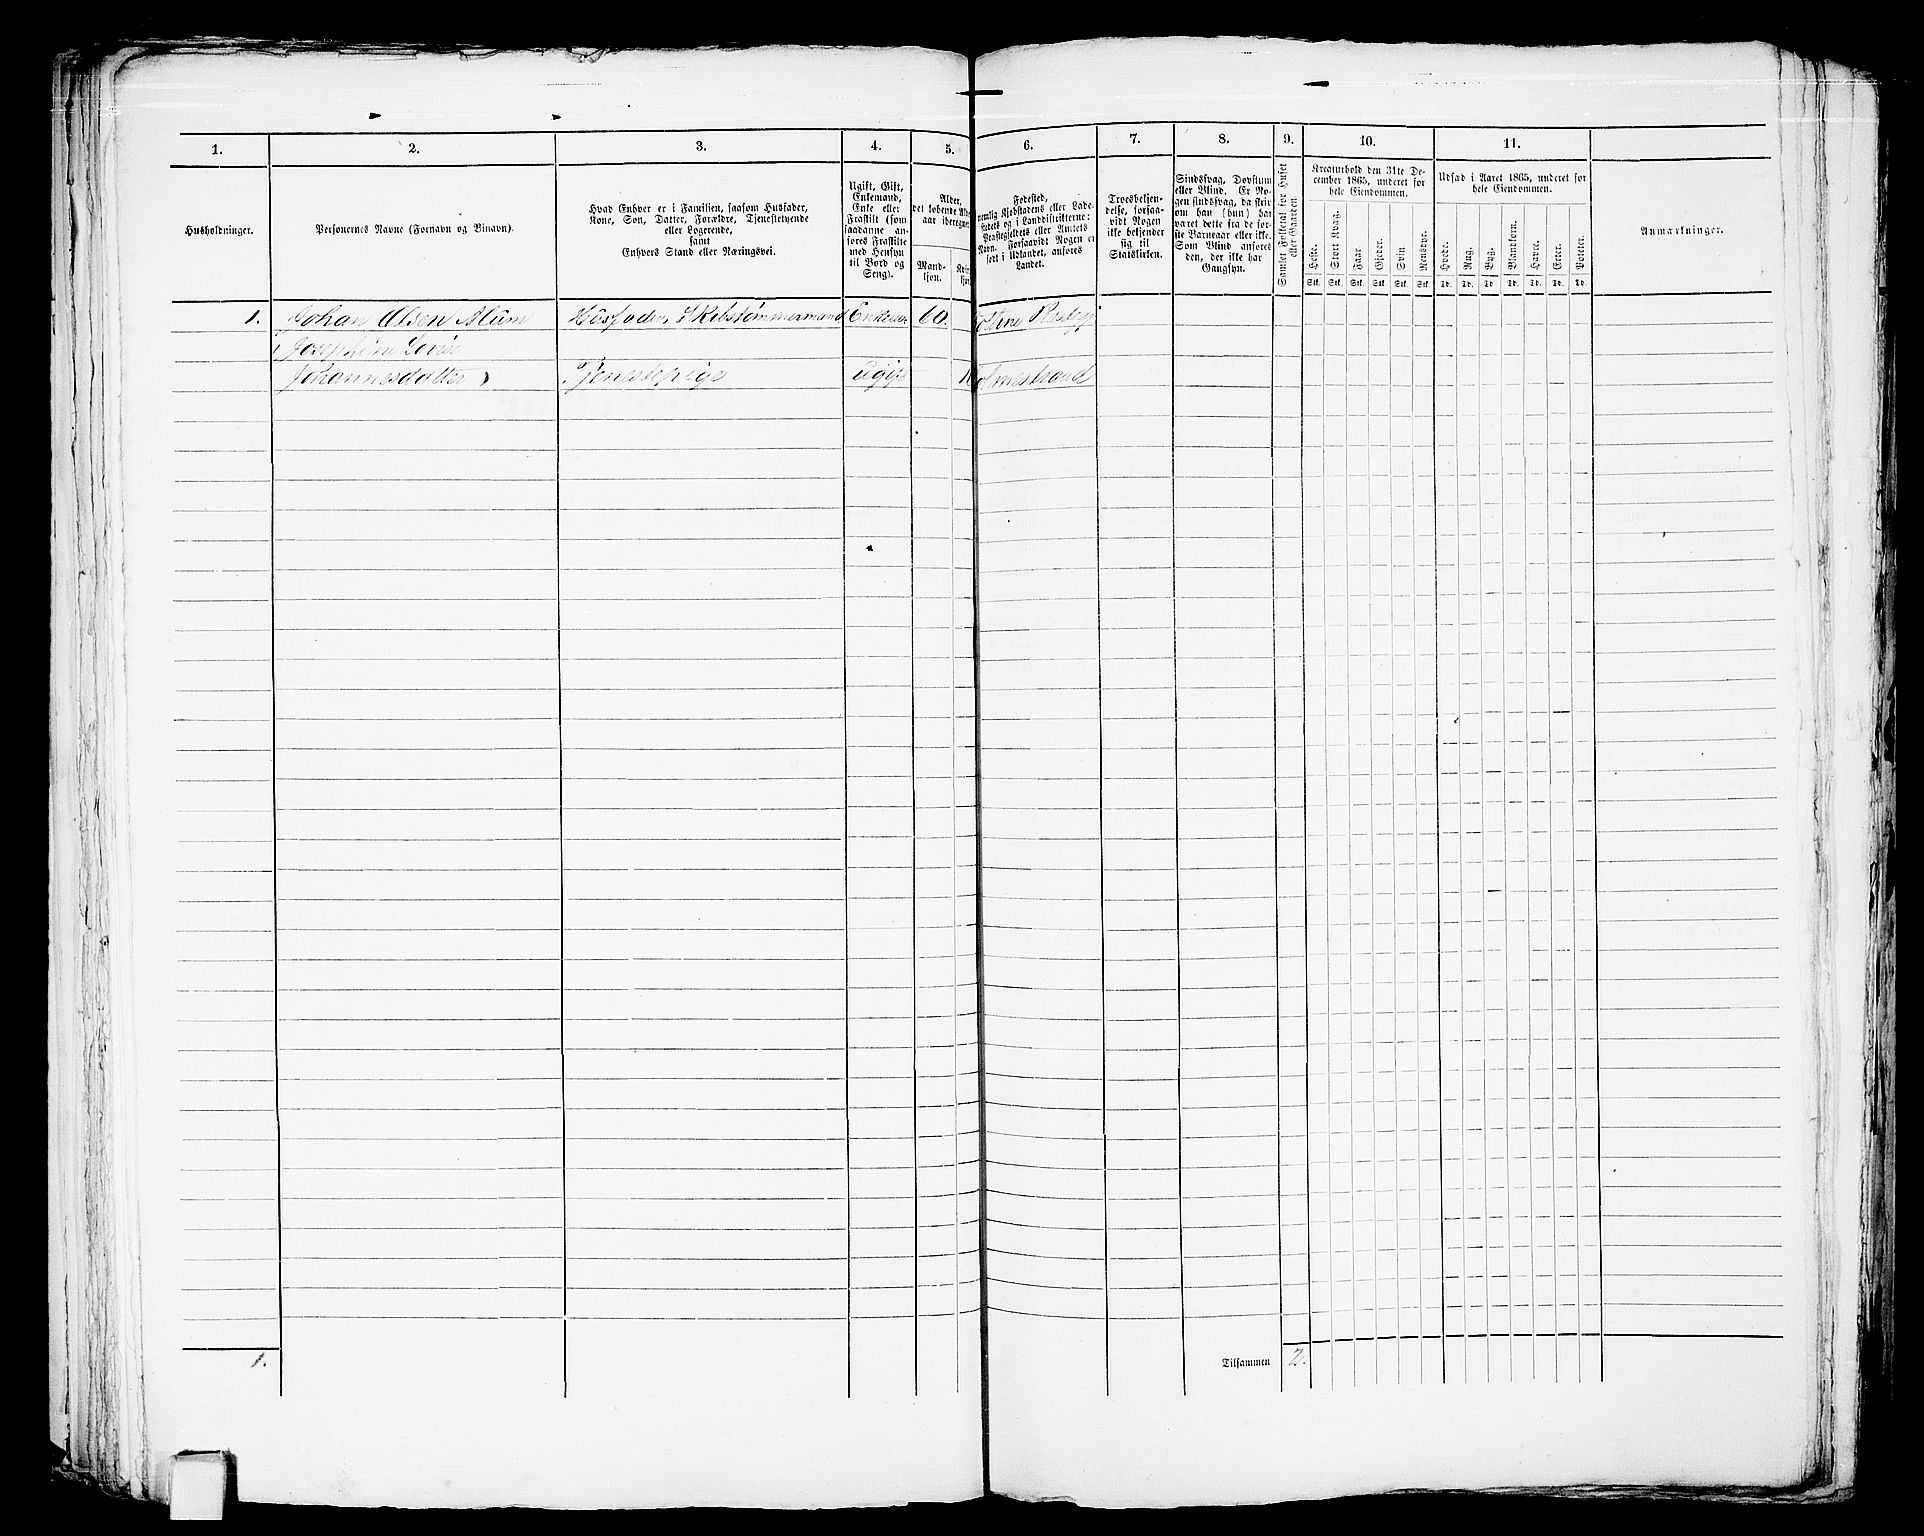 1. 2. 3. 4. 5. 6. 7. 8. 9. 10. 11.
Husholdninger.
Personernes Navne (Fornavn og Binavn).
Hvad Enhver er i Familien, saasom Husfader,
Kone, Søn, Datter, Forældre, Tjenestetyende
eller Logerende,
samt
Enhvers Stand eller Næringsvei.
Ugift, Gift,
Enkemand,
Enke eller
Fraskilt (som
saadanne an-
føres Fraskilte
med Hensyn
til Bord og
Seng).
Alder,
det løbende
aar iberegnet
Mand-
kjøn.
Fødested,
nemlig Kjøbstadens eller Lade-
stedets og i Landdistrikterne:
Præstegjeldets eller Amtets
Navn. Forsaavidt Nogen er
født i Udlandet, anføres
Landet.
Troesbekjen-
delse, forsaa-
vidt Nogen
ikke bekjender
sig til
Statskirken.
Sindssvag, Døvstum
eller Blind. Er No-
gen sindssvag, da skriv
om han (hun) har
været dette fra de før-
ste Barneaar eller ikke.
Som Blind anføres
den, der ikke har
Gangsyn.
Samlet Folketal for Huset
eller Gaarden.
Kreaturhold den 31te De-
cember 1865, underet for
hele Eiendommen.
Heste. Stort Kvæg. Faar. Gjeder. Svin Rensdyr.
Stk. Stk. Stk. Stk. Stk. Stk.
Udsæd i Aaret 1865, underet for
hele Eiendommen.
Hvede. Rug. Byg. Blandkorn. Havre. Erter. Poteter.
Td. Td. Td. Td. Td. Td. Td.
Anmærkninger.
1. Johan Olsen Alum Husfader, Skibstømmermand Enkem 60.
Josephine Lovise
Johannesdatter Tjenestepige ugift
1. Tilsammen 2.